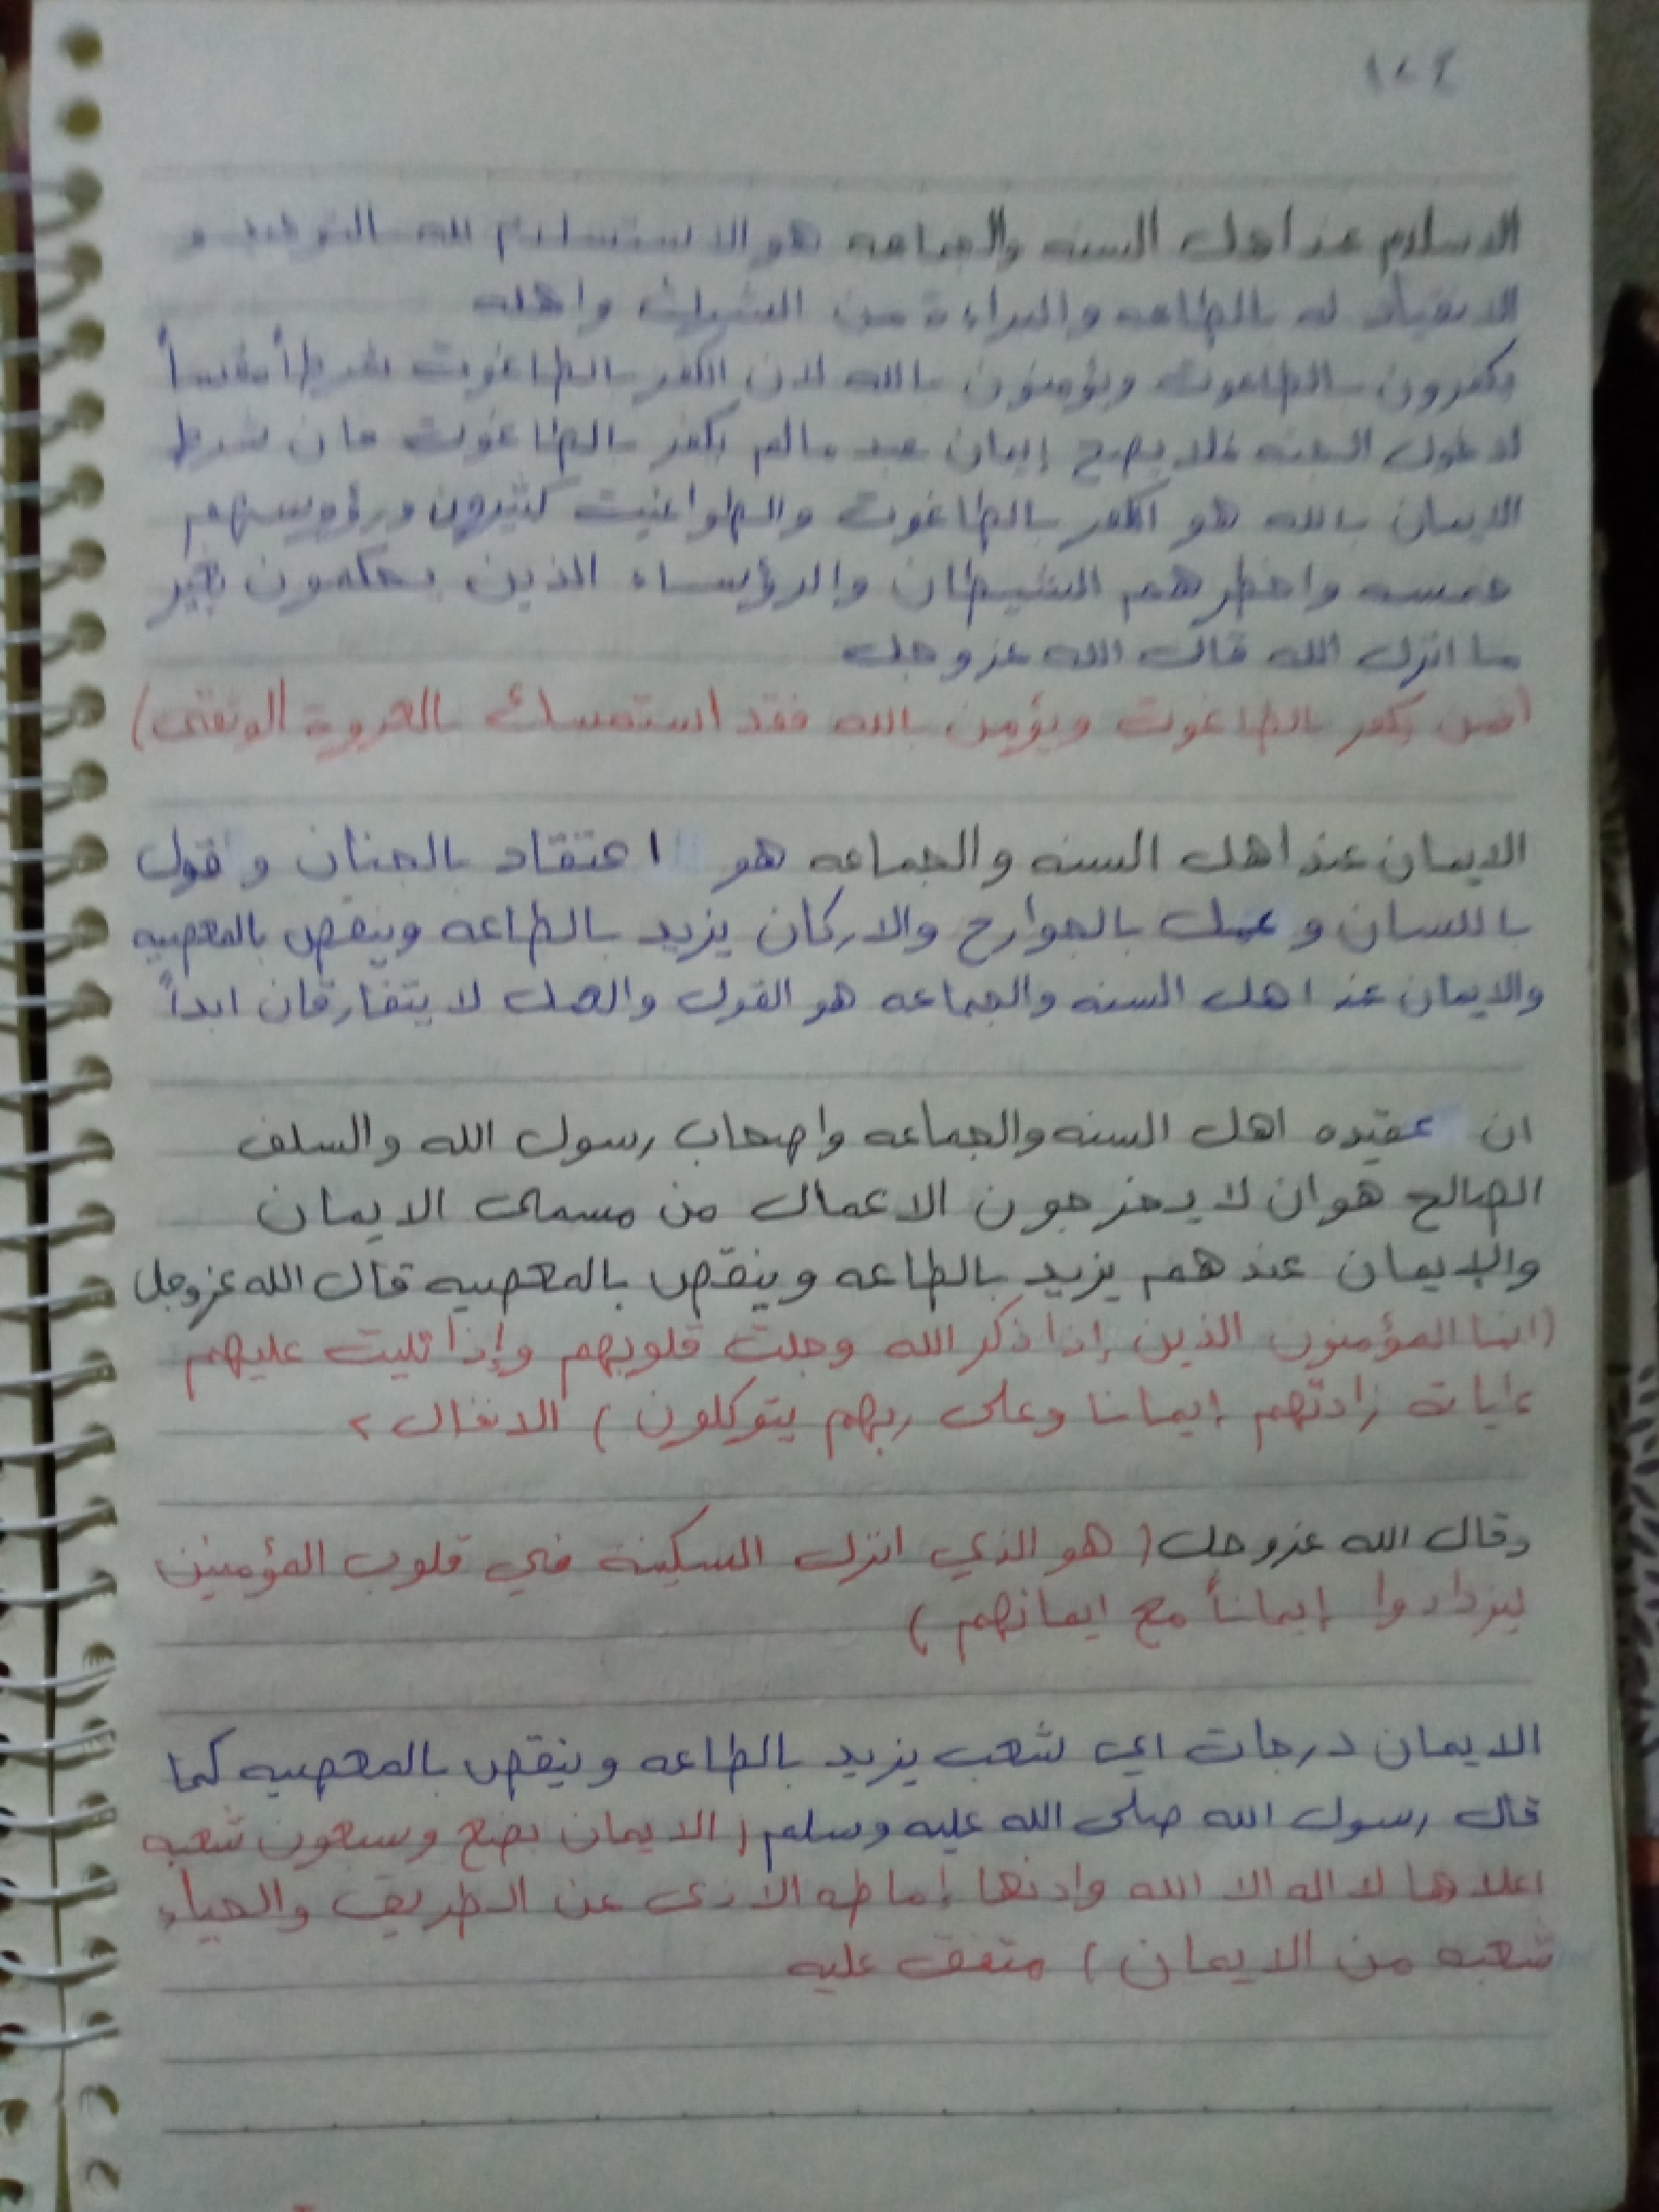 ١٠٤
الاسلام عند اهل السنه والجماعه هو الاستسلام لله بالتوحيد و
الانقياد له بالطاعه والبراءة من الشرك واهله
يكفرون بالطاغوت ويؤمنون بالله لان الكفر بالطاغوت شرطاً
لدخول الجنه فلا يصح إيمان عبد مالم يكفر بالطاغوت فان شرط
الايمان بالله هو الكفر بالطاغوت والطواغيت كثيرون ورؤوسهم
خمسه واخطرهم الشيطان والرؤساء الذين يحكمون بغير
ما انزل الله قال الله عز وجل
(فمن يكفر بالطاغوت ويؤمن بالله فقد استمسك بالعروة الوثقى)
الايمان عند اهل السنه والجماعه هو اعتقاد بالجنان و قول
باللسان و عمل بالجوارح والاركان يزيد بالطاعه وينقص بالمعصيه
والايمان عند اهل السنه والجماعه هو القول والعمل لا يتفارقان ابداً
ان عقيده اهل السنه والجماعه واصحاب رسول الله والسلف
الصالح هو ان لا يخرجون الاعمال من مسمى الايمان
والايمان عندهم يزيد بالطاعه وينقص بالمعصيه قال الله عزوجل
(انما المؤمنون الذين إذا ذكر الله وجلت قلوبهم وإذا تليت عليهم
ءاياته زادتهم إيمانا وعلى ربهم يتوكلون) الانفال ٢
وقال الله عزوجل (هو الذي انزل السكينة في قلوب المؤمنين
ليزدادوا إيماناً مع ايمانهم)
الايمان درجات اي شعب يزيد بالطاعه وينقص بالمعصيه كما
قال رسول الله صلى الله عليه وسلم (الايمان بضع وسبعون شعبه
اعلاها لا اله الا الله وادنها إماطه الاذى عن الطريق والحياء
شعبه من الايمان) متفق عليه